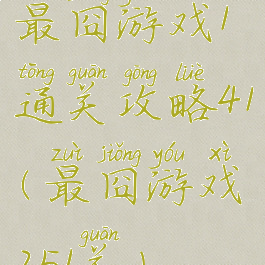 最囧游戏1
tōng guān gōng lüè
通关攻略41
zuì jiǒng yóu xì
(最囧游戏
guān
251关)